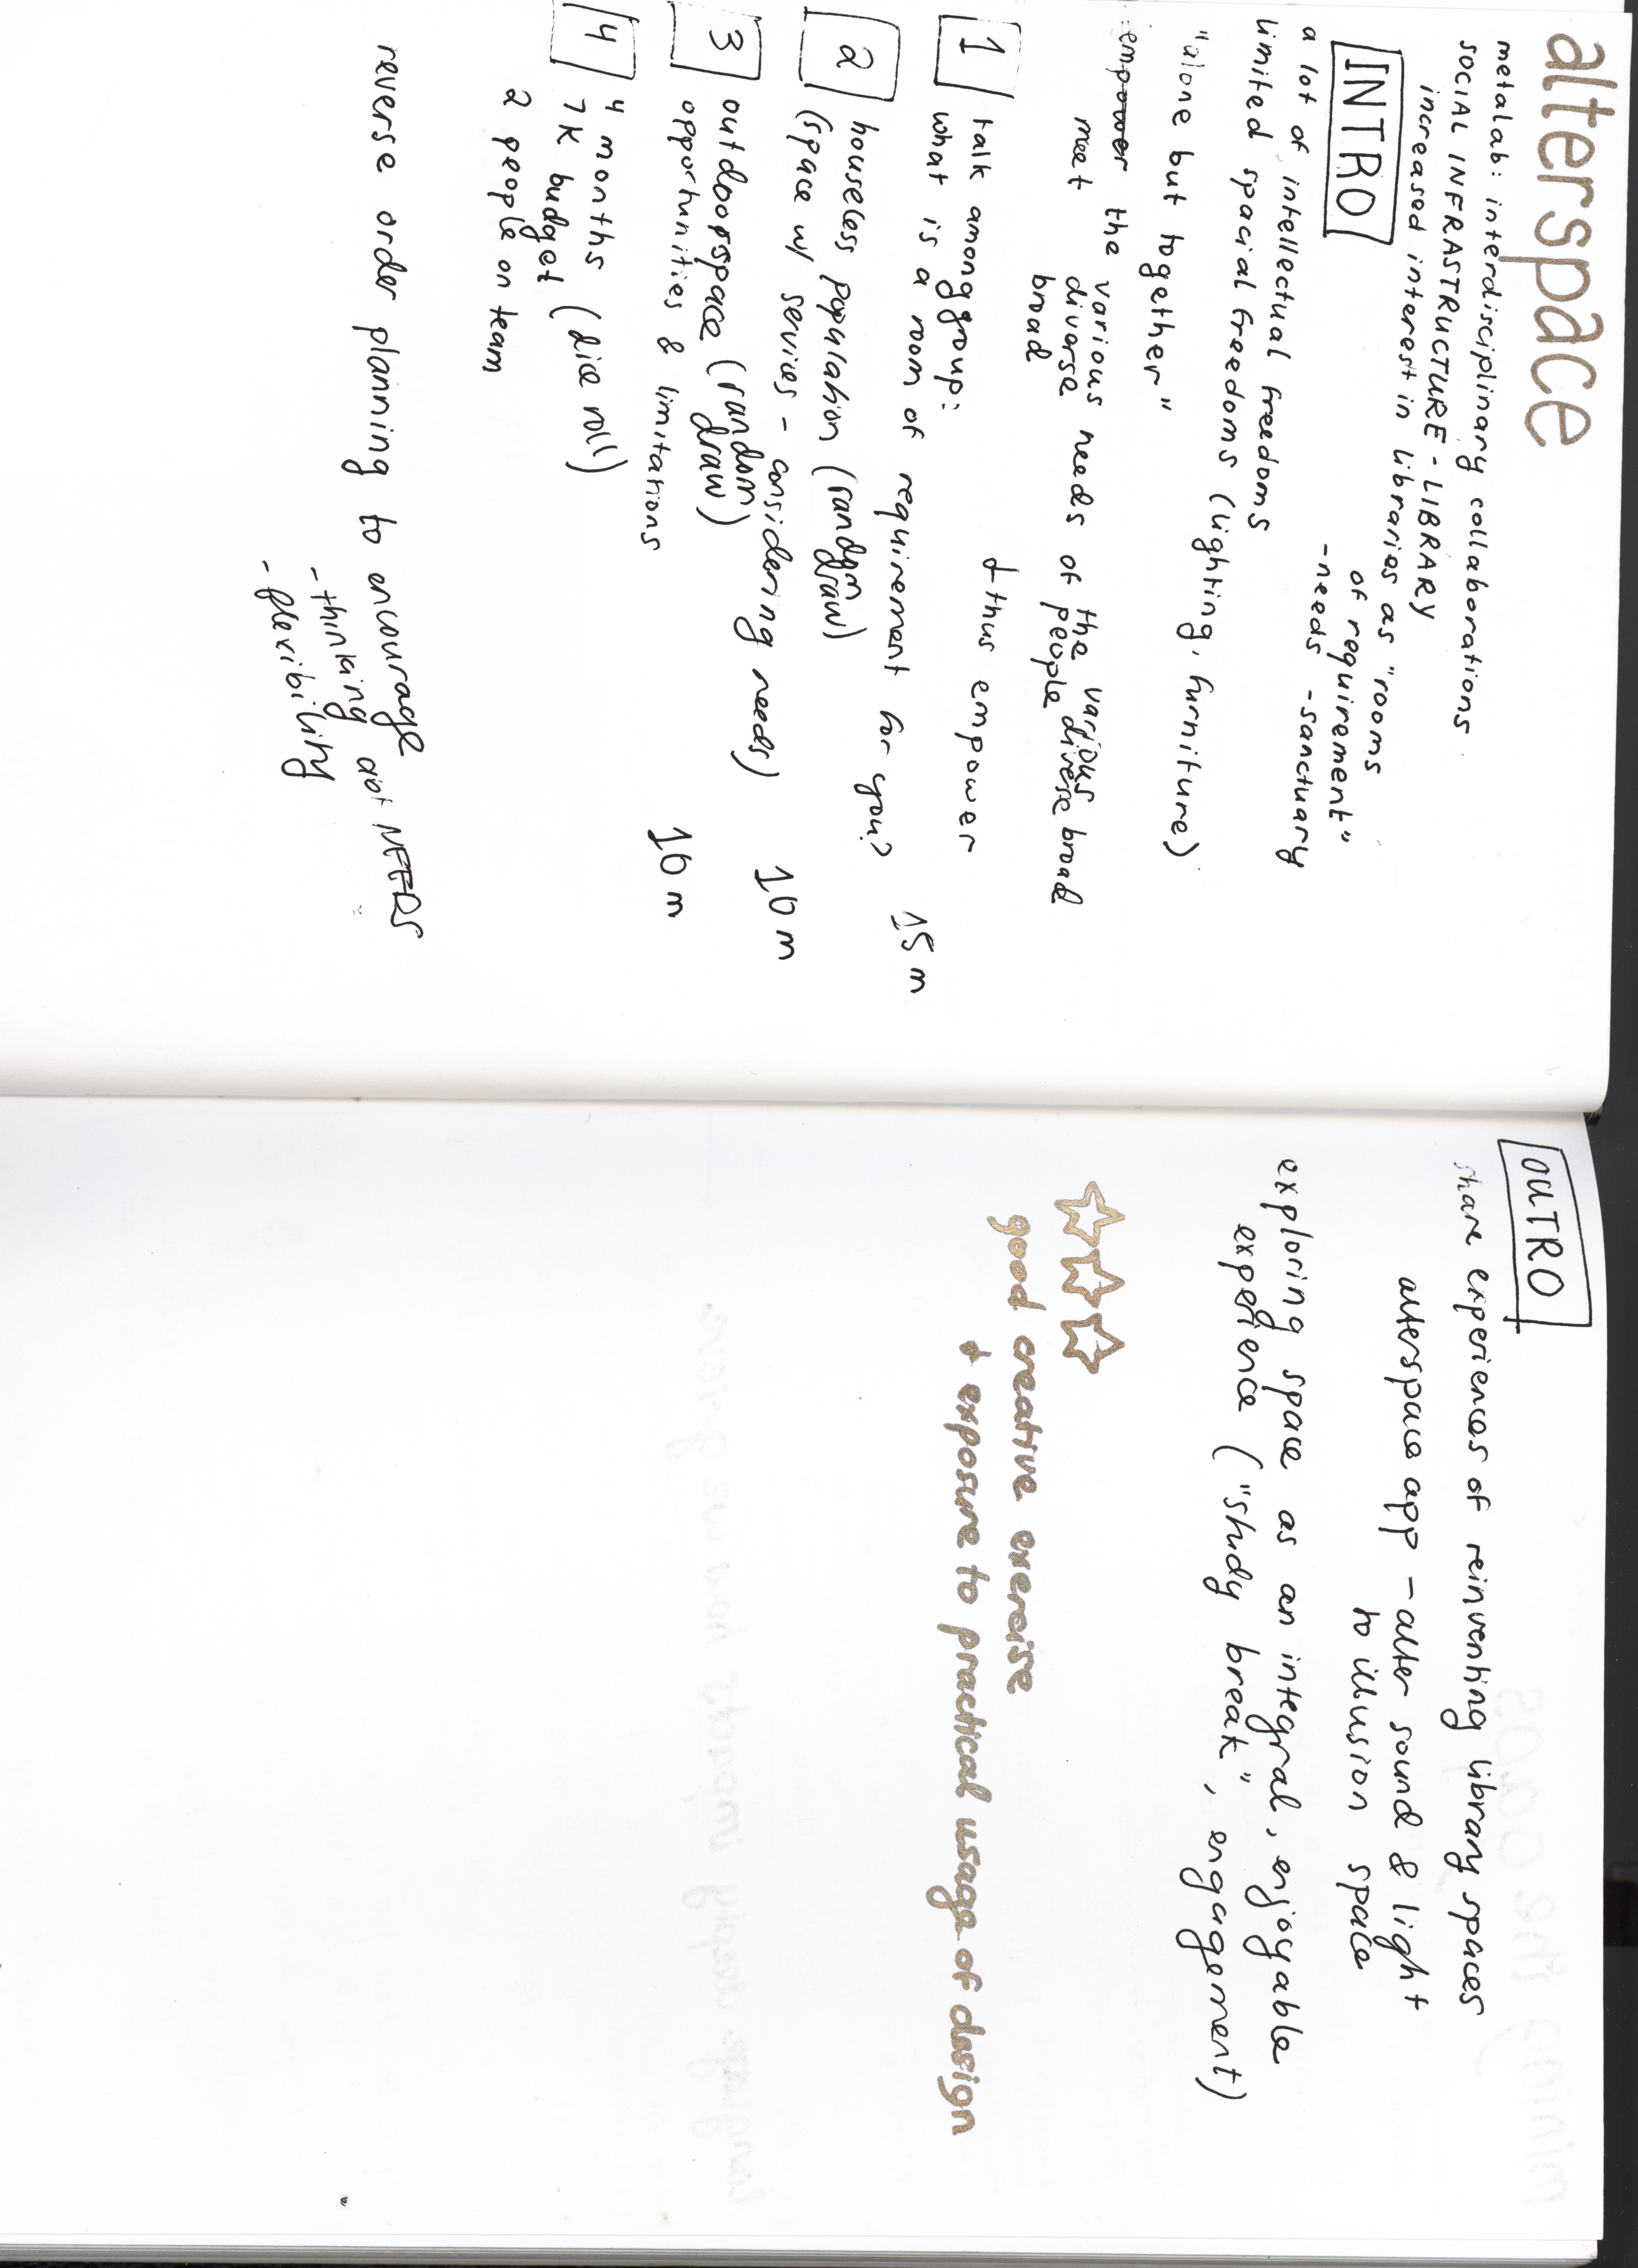 alterspace
metalab: interdisciplinary collaborations.
SOCIAL INFRASTRUCTURE - LIBRARY
increased interest in libraries as "rooms
of requirement"
- needs - sanctuary
INTRO
a lot of intellectual freedoms
limited spacial freedoms (lighting, furniture)
"alone but together"
empower the various needs of the various
meet diverse people diverse
broad broad
& thus empower
1 talk among group:
what is a room of requirement for you? 15m
2 houseless population (random
draw)
(space w/ services - considering needs) 10m
3 outdoorspace (random
draw)
opportunities & limitations 10m
4 4 months (dice roll)
7K budget
2 people on team
reverse order planning to encourage
- thinking abt NEEDS
- flexibility
OUTRO
share experiences of reinventing library spaces
alterspace app - alter sound & light
to illusion space
exploring space as an integral, enjoyable
experience ("study break", engagement)
good creative exercise
+ exposure to practical usage of design